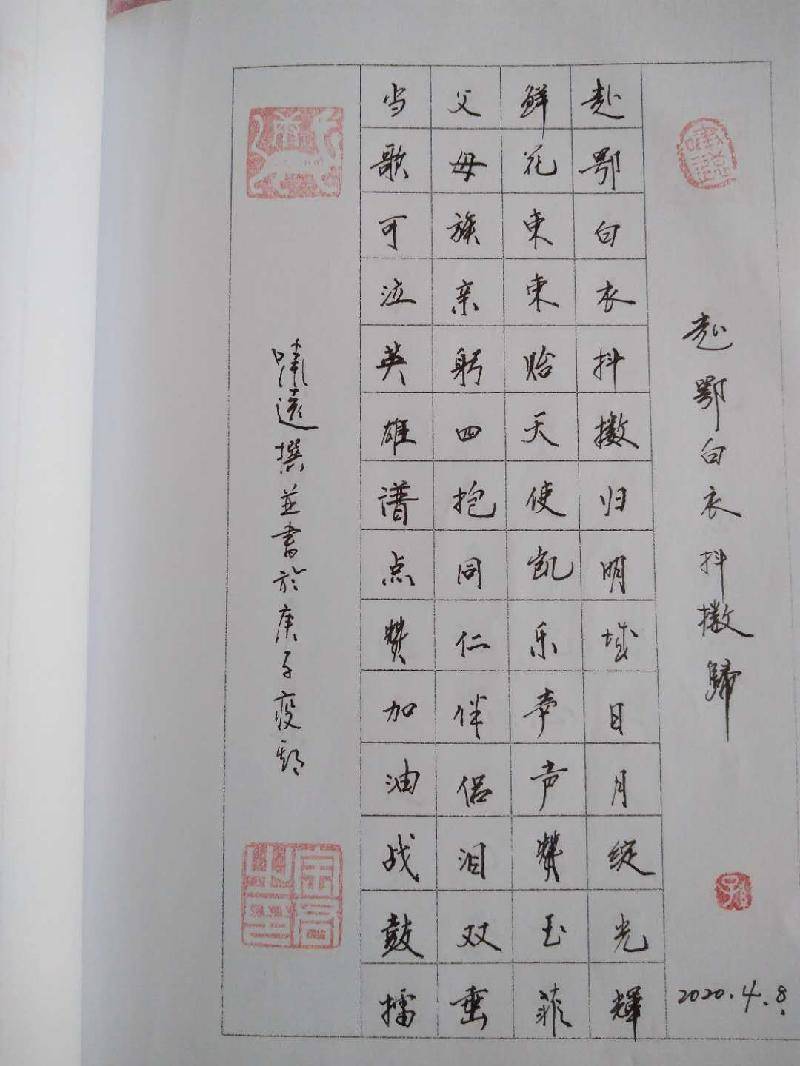 赴鄂白衣抖擞歸
2020.4.8.
赴鄂白衣抖擞归明城日月绽光輝
鲜花束束贻天使凯乐声声赞玉菲
父母族亲躬四抱同仁伴侣泪双垂
当歌可泣英雄谱点赞加油战鼓擂
啸遠撰並書於庚子疫